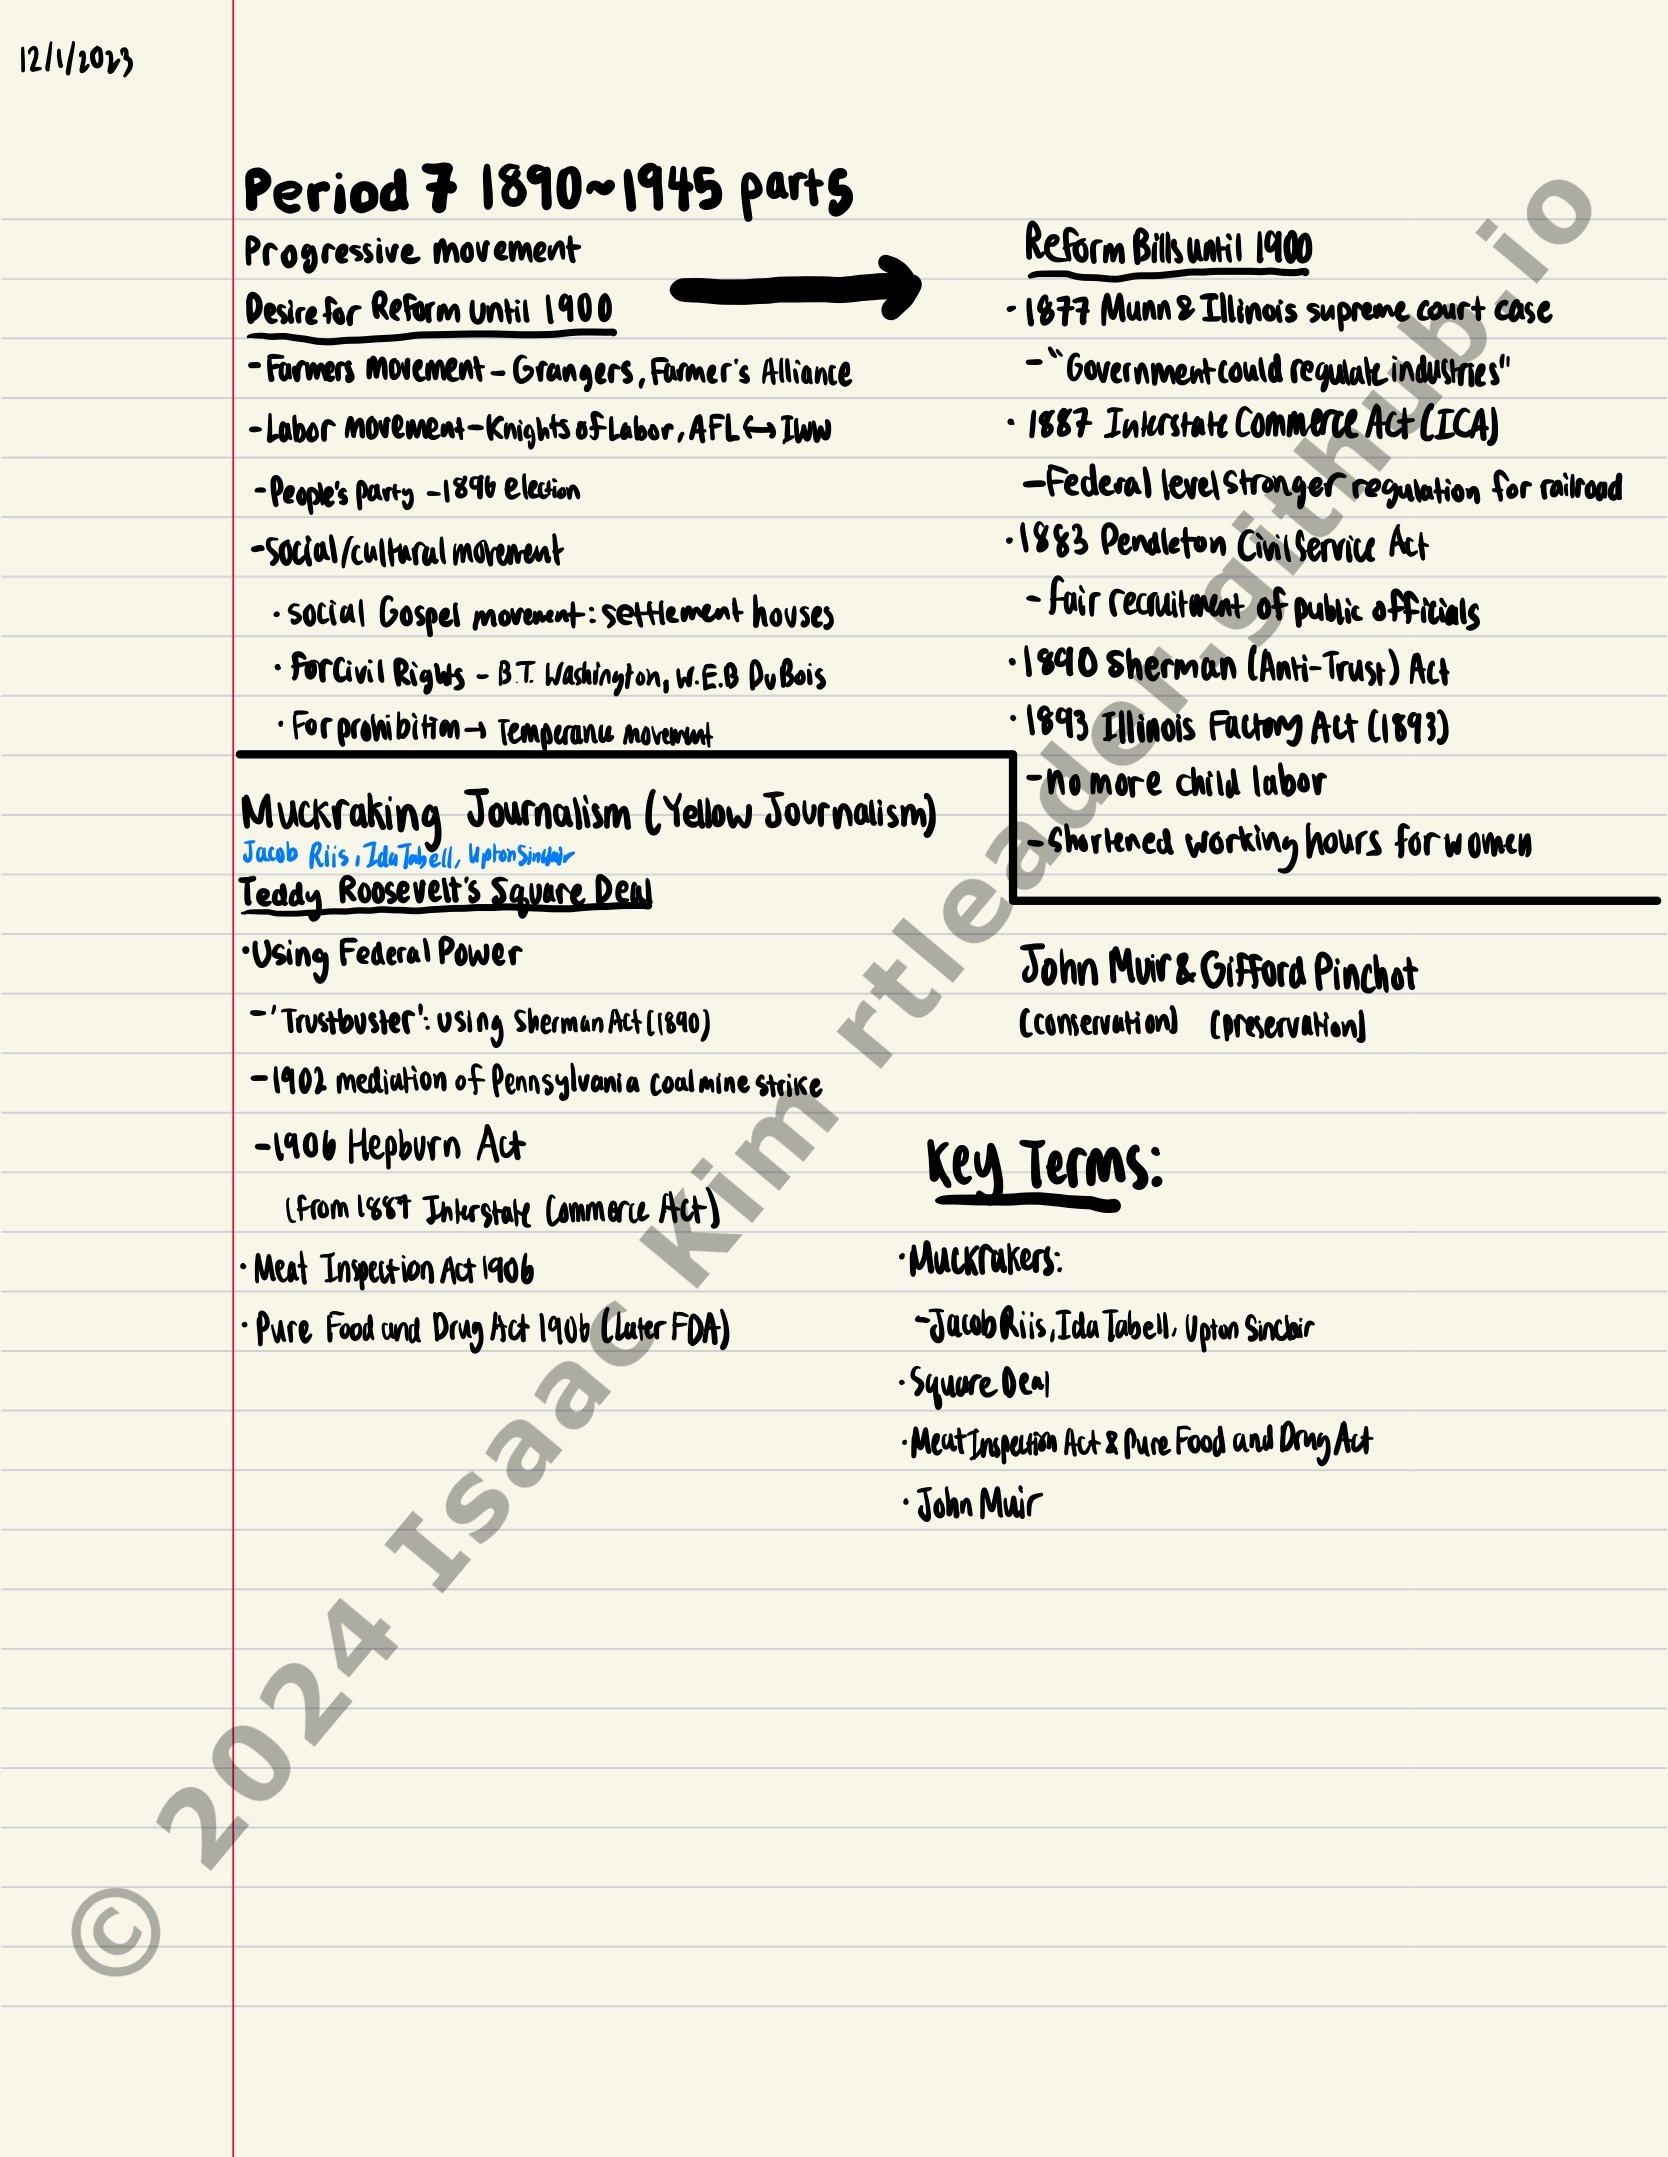 12/1/2023
Period 7 1890~1945 parts
Progressive movement
Desire for Reform until 1900
- Farmers Movement - Grangers, Farmer's Alliance
- Labor movement - Knights of Labor, AFL ↔ IWW
- People's party - 1896 election
- social/cultural movement
· social Gospel movement: settlement houses
· For Civil Rights - B.T. Washington, W.E.B DuBois
· For prohibition → Temperance movement
Reform Bills until 1900
· 1877 Munn & Illinois supreme court case
- "Government could regulate industries"
· 1887 Interstate Commerce Act (ICA)
- Federal level stronger regulation for railroad
· 1883 Pendleton Civil Service Act
- fair recruitment of public officials
· 1890 Sherman (Anti-Trust) Act
· 1893 Illinois Factory Act (1893)
- no more child labor
- shortened working hours for women
Muckraking Journalism (Yellow Journalism)
Jacob Riis, Ida Tabell, Upton Sinclair
Teddy Roosevelt's Square Deal
· Using Federal Power
- 'Trustbuster': using Sherman Act (1890)
- 1902 mediation of Pennsylvania coal mine strike
- 1906 Hepburn Act
(from 1887 Interstate Commerce Act)
· Meat Inspection Act 1906
· Pure Food and Drug Act 1906 (Later FDA)
John Muir & Gifford Pinchot
(conservation) (preservation)
Key Terms:
· Muckrakers:
- Jacob Riis, Ida Tabell, Upton Sinclair
· Square Deal
· Meat Inspection Act & Pure Food and Drug Act
· John Muir
© 2024 Isaac Kim rtleader.github.io